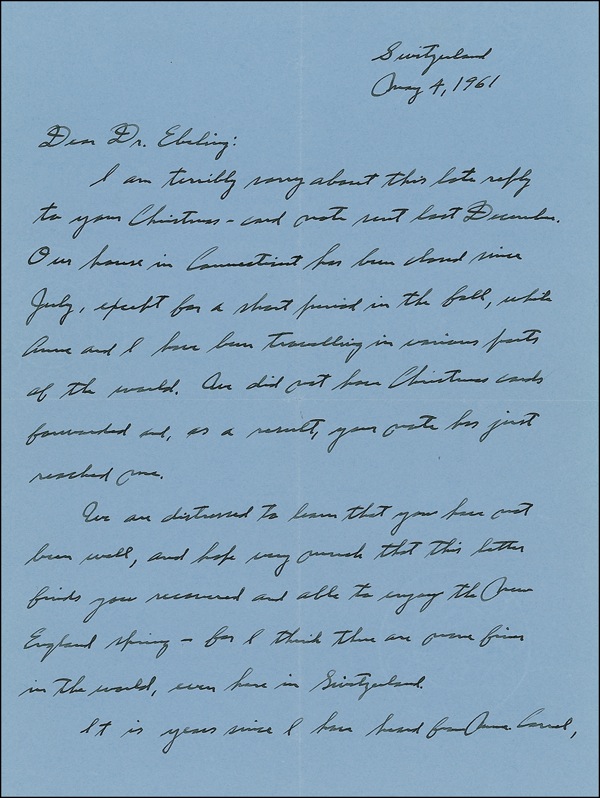 Switzerland
May 4, 1961
Dear Dr. Ebeling:
I am terribly sorry about this late reply
to your Christmas-card note sent last December.
Our house in Connecticut has been closed since
July, except for a short period in the fall, while
Anne and I have been travelling in various parts
of the world. We did not have Christmas cards
forwarded and, as a result, your note has just
reached me.
We are distressed to learn that you have not
been well, and hope very much that this letter
finds you recovered and able to enjoy the New
England spring - for I think there are none finer
in the world, even here in Switzerland.
It is years since I have heard from Mme. Carrel,